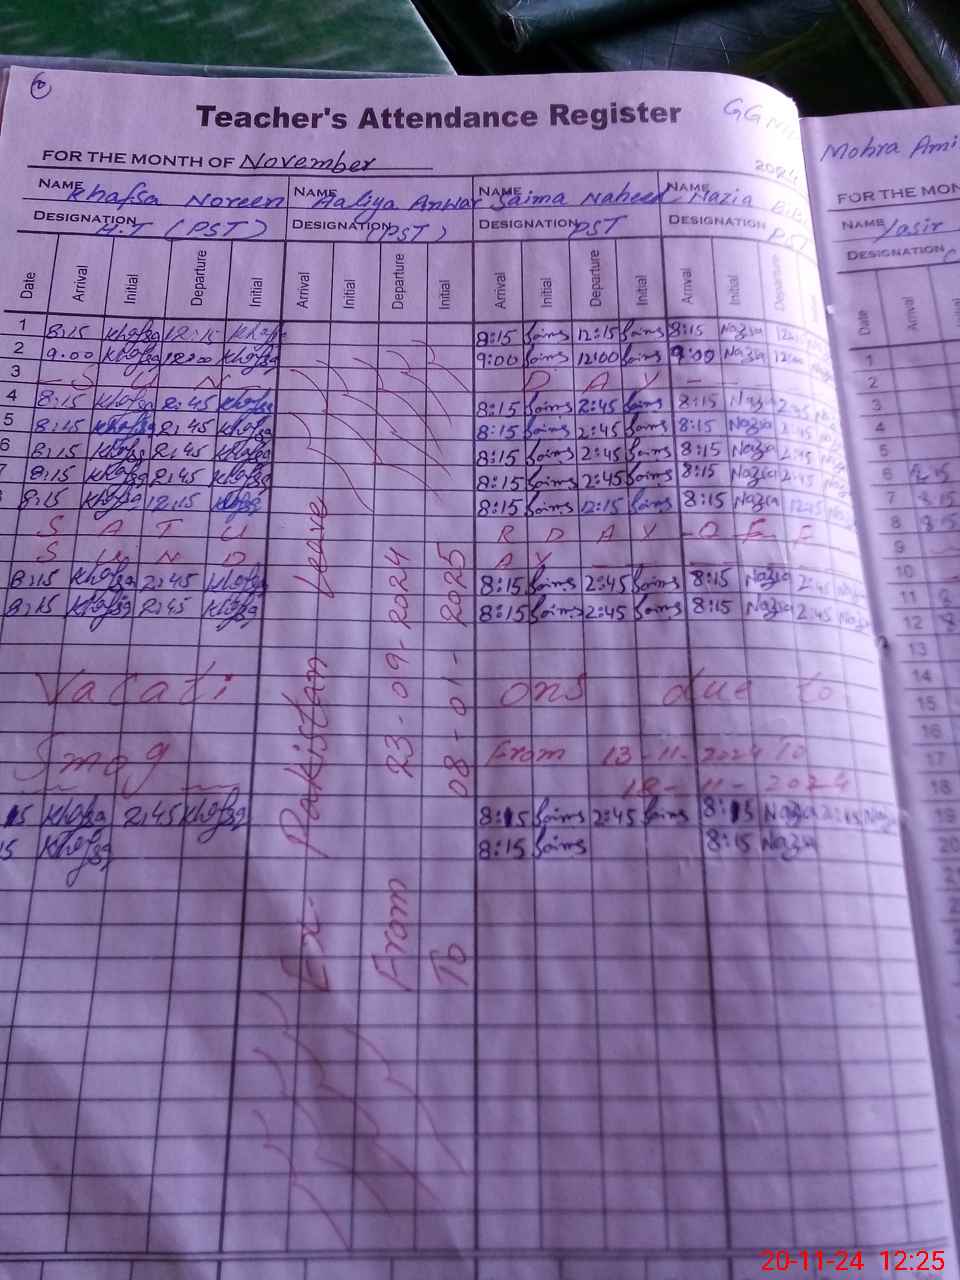 6
Teacher's Attendance Register
FOR THE MONTH OF November
2024
NAME Khafsa Noreen NAME Aaliya Anwar NAME Saima Naheed NAME Nazia Bibi
DESIGNATION H.T (PST) DESIGNATION (PST) DESIGNATION PST DESIGNATION PST
Date Arrival Initial Departure Initial Arrival Initial Departure Initial Arrival Initial Departure Initial Arrival Initial Departure
1 8:15 Khafsa 12:15 Khafsa 8:15 Saima 12:15 Saima 8:15 Nazia
2 9:00 Khafsa 12:00 Khafsa 9:00 Saima 12:00 Saima 9:00 Nazia 12:00 Nazia
3 - S U N D A Y -
4 8:15 Khafsa 2:45 Khafsa 8:15 Saima 2:45 Saima 8:15 Nazia 2:45
5 8:15 Khafsa 2:45 Khafsa 8:15 Saima 2:45 Saima 8:15 Nazia 2:45
6 8:15 Khafsa 2:45 Khafsa 8:15 Saima 2:45 Saima 8:15 Nazia 2:45
8:15 Khafsa 2:45 Khafsa 8:15 Saima 2:45 Saima 8:15 Nazia 2:45 Nazia
8:15 Khafsa 12:15 Khafsa 8:15 Saima 12:15 Saima 8:15 Nazia 12:15
S A T U R D A Y - O F F
S U N D A Y
8:15 Khafsa 2:45 Khafsa 8:15 Saima 2:45 Saima 8:15 Nazia 2:45 Nazia
8:15 Khafsa 2:45 Khafsa 8:15 Saima 2:45 Saima 8:15 Nazia 2:45 Nazia
Vacations due to
Smog From 13-11-2024 To
18-11-2024
15 Khafsa 2:45 Khafsa 8:15 Saima 2:45 Saima 8:15 Nazia 2:45 Nazia
15 Khafsa 8:15 Saima 8:15 Nazia
Ex-Pakistan Leave
From 23-09-2024
To 08-01-2025
Mohra Ami
FOR THE MON
NAME Yasir
DESIGNATION
Date Arrival
1
2
3
4
5
6
7 8:15
8
9
10
11
12
13
14
15
16
17
18
19
20
20-11-24 12:25